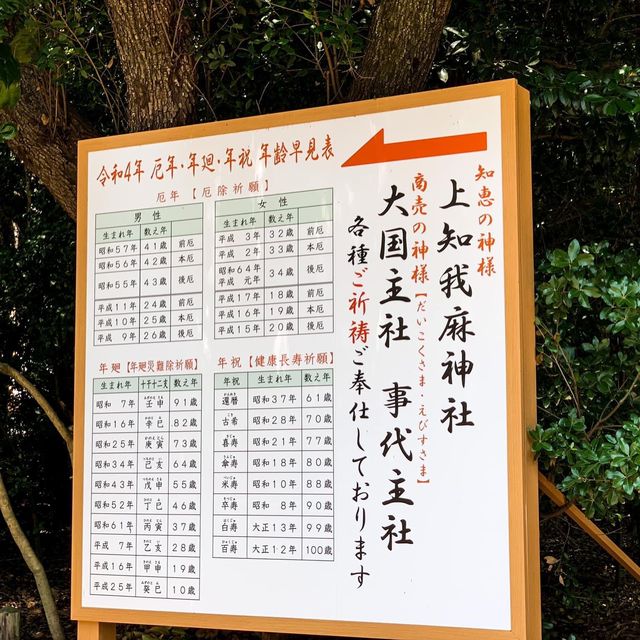 知恵の神様
上知我麻神社
商売の神様【だいこくさま・えびすさま】
大国主社 事代主社
各種ご祈祷ご奉仕しております
令和4年 厄年・年廻・年祝 年齢早見表
厄年【厄除祈願】
男性
生まれ年 数え年
昭和57年 41歳 前厄
昭和56年 42歳 本厄
昭和55年 43歳 後厄
平成11年 24歳 前厄
平成10年 25歳 本厄
平成 9年 26歳 後厄
女性
生まれ年 数え年
平成 3年 32歳 前厄
平成 2年 33歳 本厄
昭和64年
平成 元年 34歳 後厄
平成17年 18歳 前厄
平成16年 19歳 本厄
平成15年 20歳 後厄
年廻【年廻災難除祈願】
生まれ年 十干十二支 数え年
昭和 7年 壬申 91歳
昭和16年 辛巳 82歳
昭和25年 庚寅 73歳
昭和34年 己亥 64歳
昭和43年 戊申 55歳
昭和52年 丁巳 46歳
昭和61年 丙寅 37歳
平成 7年 乙亥 28歳
平成16年 甲申 19歳
平成25年 癸巳 10歳
年祝【健康長寿祈願】
年祝 生まれ年 数え年
還暦 昭和37年 61歳
古希 昭和28年 70歳
喜寿 昭和21年 77歳
傘寿 昭和18年 80歳
米寿 昭和10年 88歳
卒寿 昭和 8年 90歳
白寿 大正13年 99歳
百寿 大正12年 100歳